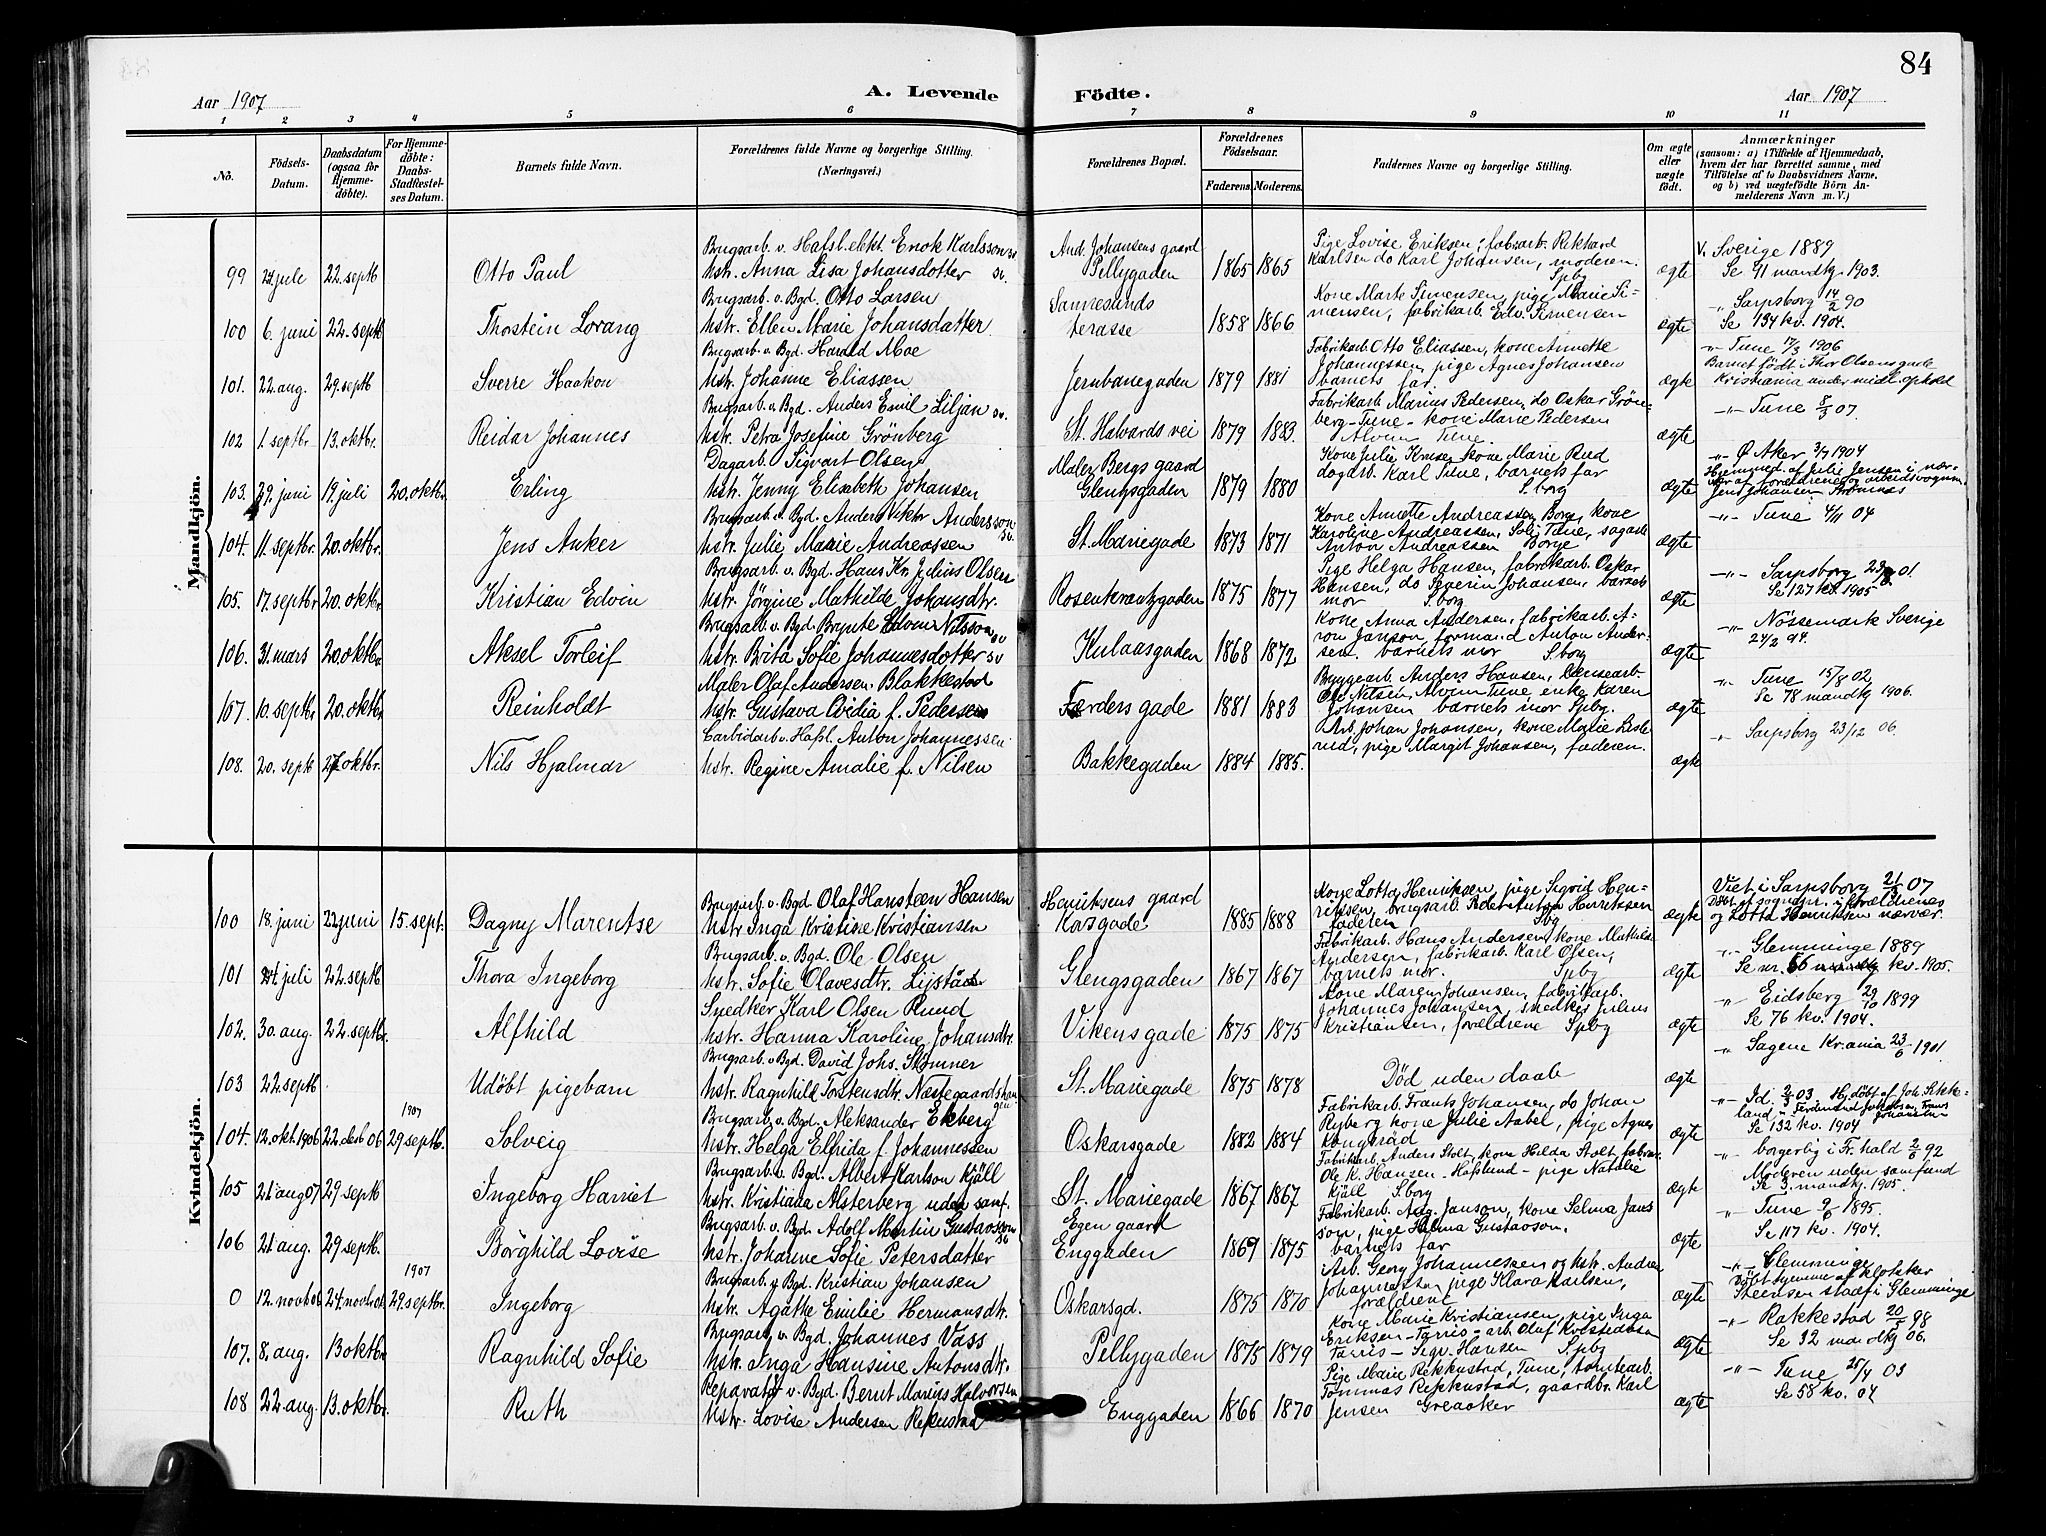 84
Aar 1907
A. Levende Födte.
Aar 1907
1 2 3 4 5 6 7 8 9 10 11
No.
Födsels-Datum.
Daabsdatum (ogsaa for Hjemme-döbte).
For Hjemme-döbte: Daabs-Stadfæstel-ses Datum.
Barnets fulde Navn.
Forældrenes fulde Navne og borgerlige Stilling.
(Næringsvei.)
Forældrenes Bopæl.
Forældrenes Födselsaar.
Faderens. Moderens.
Faddernes Navne og borgerlige Stilling.
Om ægte eller uægte födt.
Anmærkninger
(saasom: a) i Tilfælde af Hjemmedaab,
hvem der har forrettet samme, med
Tilföielse af to Daabsvidners Navne,
og b) ved uægtefödte Börn An-
melderens Navn m. V.)
Mandkjön.
Brugsarb. v. Hafsl. elekt. Enok Karlsson
And. Johansens gaard
Pige Lovise Eriksen, fabrarb. Rikhard
V. Sverige 1889
99 juli 22. septb Otto Paul Hstr. Anna Lisa Johansdotter sv. Pellygaden 1865 1865 Karlsen do Karl Johansen, moderen. Spbg ægte Se 91 mandkj. 1903.
Brugsarb. v. Bgd. Otto Larsen
Sannesunds
Kone Marte Simensen, pige Marie Si-
-"- Sarpsborg 14/2 90
100 6. juni 22. septb Thorstein Lorang Hstr. Ellen Marie Johansdatter terasse 1858 1866 mensen, fabrikarb. Edv. Simensen ægte Se 134 kv. 1904.
Brugsarb. v. Bgd. Harald Moe
Fabrikarb. Otto Eliassen, kone Annette
-"- Tune 17/3 1906
101. 22. aug. 29. septb Sverre Haakon Hstr. Johanne Eliassen Jernbanegaden 1879 1881 Johannessen, pige Agnes Johansen
barnets far. ægte Barnet födt i Thor Olsens gade
Kristiania under midl. ophold
Brugsarb. v. Bgd. Anders Emil Liljan sv.
Fabrikarb. Marius Pedersen, do Oskar Grön-
-"- Tune 8/3 07.
102 1. septbr 13. oktbr. Reidar Johannes Hstr. Petra Josefine Grönberg St. Halvards vei 1879 1883. berg - Tune - kone Marie Pedersen
Alvim Tune. ægte
Dagarb. Sigvart Olsen
Maler Bergs gaard
Kone Julie Jensen kone Marie Rud
-"- Ø. Aker 3/7 1904
103. 29. juni 19. juli 20. oktbr. Erling Hstr. Jenny Elisabeth Johansen Glengsgaden 1879 1880 dagarb. Karl Tune, barnets far
S.borg ægte Hjemmed. af Julie Jensen i nær-
vær af forældrene og arbeidsvognm.
Jens Johansen
Brugsarb. v. Bgd. Anders Viktor Andersson sv.
Kone Annette Andreassen Borge, kone
-"- Tune 4/11 04
104. 11. septbr. 20. oktbr. Jens Anker Hstr. Julie Marie Andreassen St. Mariegade 1873 1871 Karoline Andreassen, Soli Tune, sagarb.
Anton Andreassen Borge ægte
Brugsarb. v. Bgd. Hans Kr. Julius Olsen
Pige Helga Hansen, fabrikarb. Oskar
-"- Sarpsborg 01.
105. 17. septbr 20. oktbr. Kristian Edvin Hstr. Jörgine Mathilde Johansdtr. Rosenkrantzgaden 1875 1877 Hansen, do Severin Johansen, barnets
mor S.borg ægte Se 127 kv. 1905
Brugsarb. v. Bgd. Brynte Edvin Nilsson sv
Kone Anna Andersen, fabrikarb. A-
-"- Nössemark Sverige
106. 31. mars 20. oktbr Aksel Torleif Hstr. Brita Sofie Johannesdotter sv Kulaasgaden 1868 1872 ron Janson, forma.d Anton Ander-
sen. barnets mor S.borg ægte 24/2 94.
Maler Olaf Andersen Blakkestad
Byggearb. Anders Hansen,
-"- Tune 15/8 02.
107. 10. septbr 20. oktbr Reinholdt Hstr. Gustava Ovidia f. Pedersen Færdersgade 1881 1883 Ole Nilsen, Alvim Tune, enke Karen
Johansen barnets mor Spbg. ægte Se 78 mandkj 1906.
Carbidarb v. Hafsl. Anton Johannessen
Arb. Johan Johansen, kone Marie
-"- Sarpsborg 23/12 06.
108. 20. septb 27 oktbr. Nils Hjalmar Hstr. Regine Amalie f. Nilsen Bakkegaden 1884 1885. rud, pige Margit Johansen, faderen. ægte
Kvindekjön.
Brugsarb. v. Bgd Olaf Hansteen Hansen
Henriksens gaard
Kone Lotta Henriksen, pige Sigrid Hen-
Viet i Sarpsborg 07
100 18. juni 22 juni 15. sept. Dagny Marentse Hstr Inga Kristine Kristiansen Kasgade 1885 1888 riksen, brugsarb. Peder Anton Henriksen
faderen Sbg ægte Döbt af sognepr. i forældrenes
og Lotta Henriksen nærvær.
Brugsarb. v. Bgd. Ole Olsen
Fabrikarb. Hans Andersen, kone Mathilde
-"- Glemminge 1889
101 juli 22. septb Thora Ingeborg Hstr. Sofie Olavesdtr. Glengsgaden 1867 1867 Andersen, fabrikarb. Karl Olsen,
barnets mor. Spbg ægte Se nr. 56 kv. 1905.
Snedker Karl Olsen Rund
Kone Maren Johansen, fabrikarb.
" Eidsberg 29/10 1899
102. 30. aug. 22. septbr. Alfhild Hstr. Hanna Karoline Johansdtr. Vikensgade 1875 1875 Johannes Johansen, snedker Julius
Kristiansen, forældrene Spbg ægte Se 76 kv. 1904.
Brugsarb. v. Bgd. David Johs. Stömner
" Sagene Kr.ania 23/6 1901
103 22. septb Udöbt pigebarn Hstr. Ragnhild Torstensdtr. Næstegaardshaugen St. Mariegade 1875 1878 Död uden daab ægte
1907
Brugsarb. v. Bgd. Aleksander Ekberg
Fabrikarb. Frants Johansen, do Johan
-"- Id. 2/3 03. Hj.döbt af Joh. Sikke-
land i Ferdinand Jakobsen, Frants Johansen
104. 12. okt. 1906 22. decb 06. 29 septb. Solveig Hstr. Helga Elfrida f. Johannessen Oskarsgade 1882 1884 Ryberg kone Julie Aabel, pige Agnes
Kongsröd ægte Se 132 kv. 1904
Brugsarb. v. Bgd. Albert Karlson Kjäll
Fabrikarb. Anders Stolt, kone Hilda Stolt, fabrar.
" borgerlig i Fr.hald 2/6 92
105 21. aug 07 29. septb. Ingeborg Harriet Hstr. Kristiana Alsterberg uden samf. St. Mariegade 1867 1867 Ole K. Hansen - Hafslund - pige Natalie
Kjäll S.borg ægte Moderen uden samfund
Se 3. mandkj. 1905.
Brugsarb. v. Bgd. Adolf Martin Gustavsson sv
Egen gaard
Fabrikarb. Aug. Janson, kone Selma Jans
-"- Tune 9/6 1895.
106 21. aug. 29 septb. Borghild Lovise Hstr. Johanne Sofie Petersdatter Enggaden 1869 1875 son, pige Halma Gustavson.
barnets far ægte Se 117 kv. 1904.
1907
Brugsarb. v. Bgd. Kristian Johansen
Arb. Georg Johannessen og hstr. Andrea
-"- Glemminge
0 12. novb 06 24. novb. 06. 29. septbr. Ingeborg Hstr. Agathe Emilie Hermansdtr. Oskarsgd. 1875 1870 Johannessen pige Klara Karlsen,
forældrene ægte Döbt hjemme af klokker
Steensen stadf. i Glemminge
Brugsarb. v. Bgd. Johannes Vass
Kone Marie Kristiansen, pige Inga
-"- Rakkestad 20/5 98
107. 8. aug. 13 oktbr Ragnhild Sofie Hstr. Inga Hansine Antonsdtr. Pellygaden 1875 1879 Eriksen - Tarris - arb. Olaf Kristiansen
Tarris - Sigv. Hansen Spbg ægte Se 32 mandkj 06.
Reparatör v. Bgd. Bernt Marius Halvorsen
Pige Marie Rekkustad, Tune, tomtearb.
-"- Tune 25/4 03
108 22. aug. 13. oktbr. Ruth Hstr. Lovise Andersen Rekustad Enggaden 1866 1870 Tommas Rekkustad, gaardbr. Karl
Jensen Greaaker ægte Se 58 kv. 04.